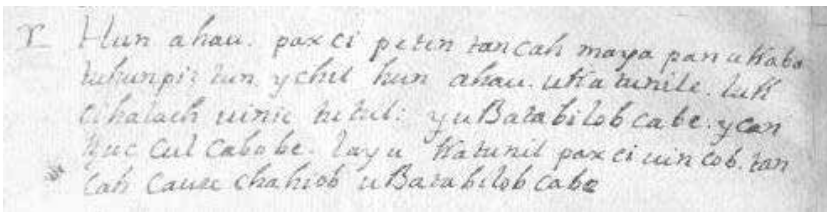 Hun ahau. paxci peten tancah maya pan u kaba
tu hunpiz tun. ychil hun ahau. u katunile. luk
ci halach uinic tutul: yu Batabilob cabe. y can
tzuc cul cabobe. lay u katunil paxci uincob. tan
cah cauu chahiob u Batabilob cabe